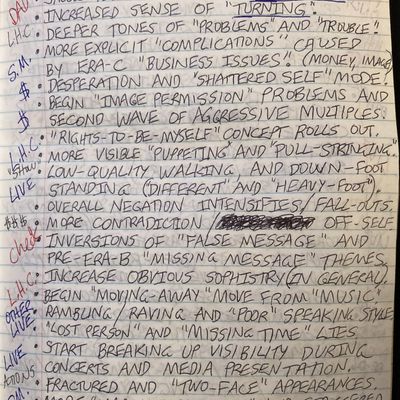 • INCREASED SENSE OF "TURNING".
L.H.C. • DEEPER TONES OF "PROBLEMS" AND "TROUBLE".
• MORE EXPLICIT "COMPLICATIONS" CAUSED
S.M. BY ERA-C "BUSINESS ISSUES" (MONEY, IMAGE)
$ • DESPERATION AND "SHATTERED SELF" MODE.
• BEGIN "IMAGE PERMISSION" PROBLEMS AND
$ SECOND WAVE OF AGGRESSIVE MULTIPLES.
• "RIGHTS-TO-BE-MYSELF" CONCEPT ROLLS OUT.
L.H.C. • MORE VISIBLE "PUPPETING" AND "PULL-STRINGING."
"SHOW" • LOW-QUALITY WALKING AND DOWN-FOOT
LIVE STANDING (DIFFERENT AND "HEAVY-FOOT").
• OVERALL NEGATION INTENSIFIES / FALL-OUTS.
$$$ • MORE CONTRADICTION / OFF-SELF
INVERSIONS OF "FALSE MESSAGE" AND
PRE-ERA-B "MISSING MESSAGE" THEMES.
L.H.C. • INCREASE OBVIOUS SOPHISTRY (IN GENERAL).
• BEGIN "MOVING-AWAY" MOVE FROM "MUSIC".
OTHER LIVE • RAMBLING / RAVING AND "POOR" SPEAKING STYLE
"LOST PERSON" AND "MISSING TIME" LIES
LIVE • START BREAKING UP VISIBILITY DURING
CONCERTS AND MEDIA PRESENTATION.
• FRACTURED AND "TWO-FACE" APPEARANCES.